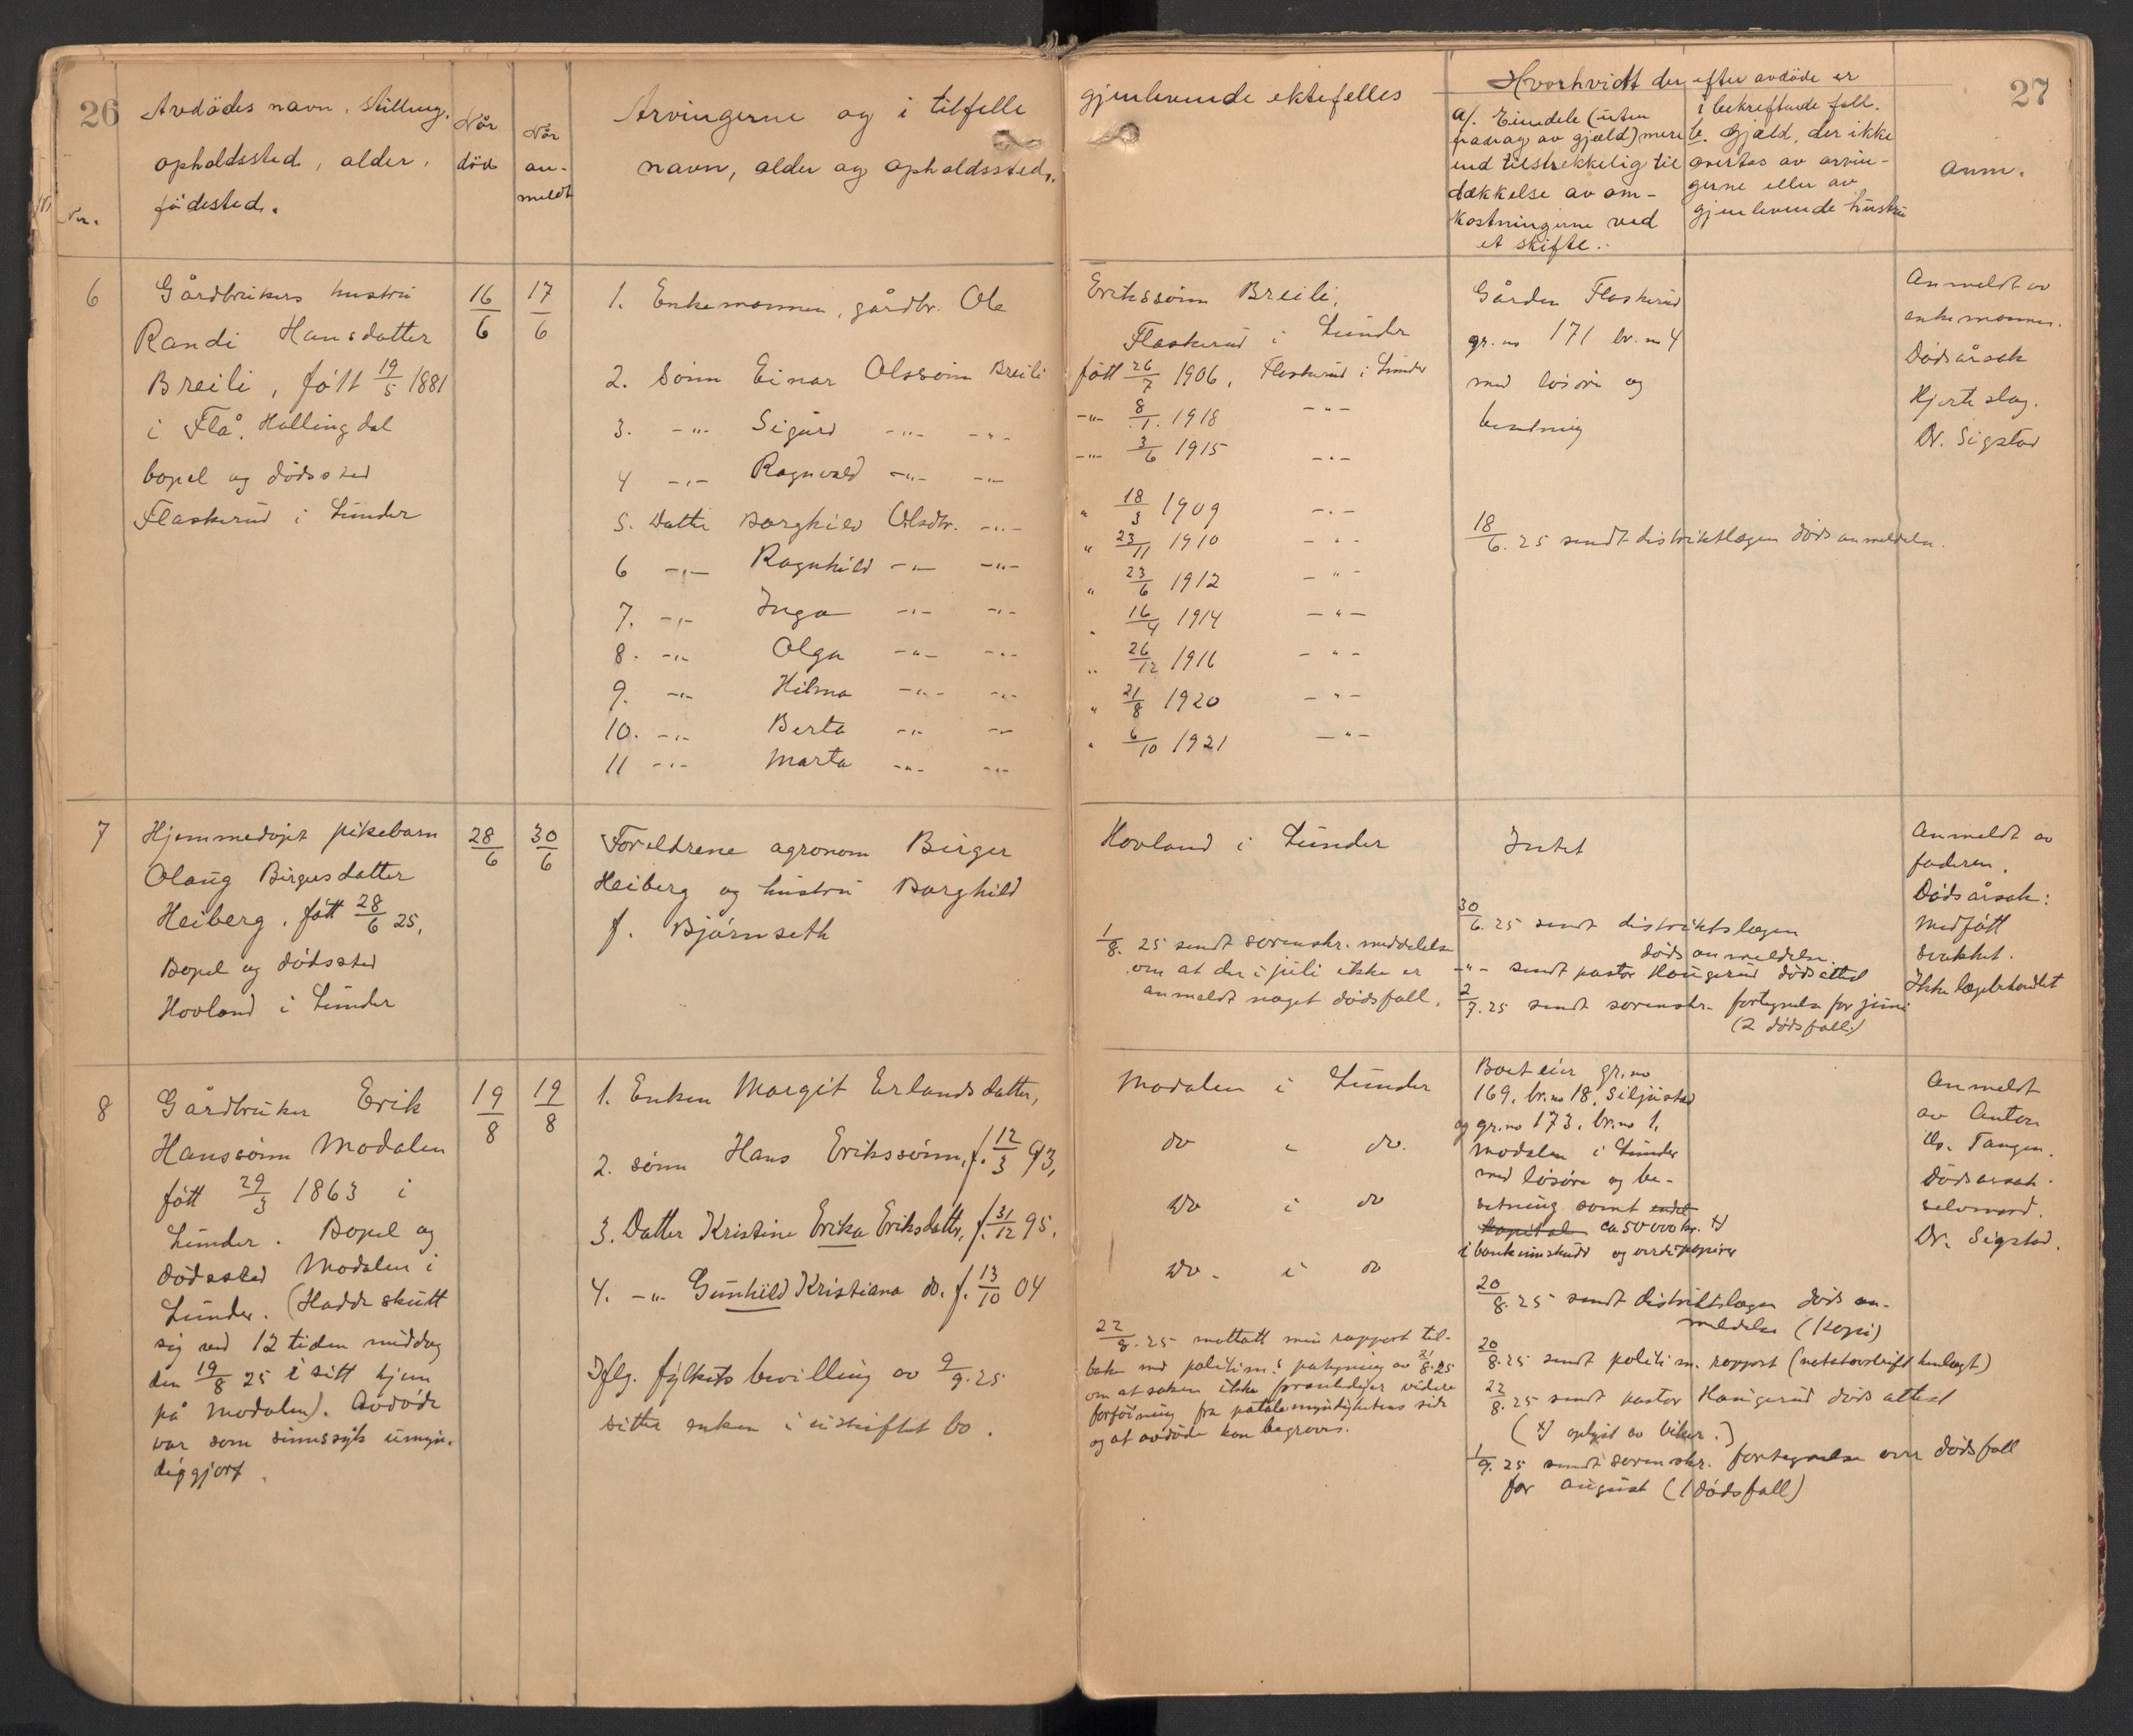 26
Avdödes navn, stilling,
opholdssted, alder,
födested.
Nr.
Når
död
Når
an-
meldt
Arvingerne og i tilfelle
navn, alder og opholdssted.
gjenlevende ektefelles
Hvorhvidt der efter avdöde er
a). Eiendele (uten
fradrag av gjæld) mere
end tilstrekkelig til
dækkelse av om-
kostningerne ved
et skifte.
i bekreftende fall.
b. Gjæld, der ikke
overtas av arvin-
gerne eller av
gjenlevende hustru
Anm.
27
6
Gårdbrukers hustru
Randi Hansdatter
Breili, född 19/5 1881
i Flå, Hallingdal
bopel og dödssted
Flaskerud i Lunder
16/6
17/6
1. Enkemannen, gårdbr. Ole
2. Sönn Einar Olssönn Breili
3. -"- Sigurd -"- -"-
4 -"- Ragnvald -"- -"-
5. Datter Borghild Olsdtr. -"-
6 -"- Ragnhild -"- -"-
7. -"- Inga -"- -"-
8. -"- Olga -"- -"-
9. -"- Hilma -"- -"-
10. -"- Berta -"- -"-
11 -"- Marta -"- -"-
Erikssönn Breili,
Flaskerud i Lunder
fött 26/7 1906, Flaskerud i Lunder
-"- 8/1 1918 -"-
-"- 3/6 1915 -"-
" 18/3 1909 -"-
" 23/11 1910 -"-
" 23/6 1912 -"-
" 16/4 1914 -"-
" 26/12 1916 -"-
" 21/8 1920 -"-
" 6/10 1921 -"-
Gården Flaskerud
gr. no 171 br. no 4
med lösöre og
besetning
18/6. 25 sendt distriktslægen dödsanmeldelse.
Anmeldt av
enkemannen.
Dödsårsak
Hjerteslag.
Dr. Sigstad
7
Hjemmedöpt pikebarn
Olaug Birgersdatter
Heiberg, fött 28/6 25,
Bopel og dödssted
Hovland i Lunder
28/6
30/6
Foreldrene agronom Birger
Heiberg og hustru Borghild
f. Björnseth
Hovland i Lunder
1/8. 25 sendt sorenskr. meddelelse
om at der i juli ikke er
anmeldt noget dödsfall.
Intet
30/6. 25 sendt distriktslægen
dödsanmeldelse.
-"- sendt pastor Haugerud dödsattest
2/7. 25 sendt sorenskr. fortegnelse for juni
(2 dödsfall)
Anmeldt av
faderen.
Dödsårsak:
Medfött
svakhet.
Ikke lægebehandlet
8
Gårdbruker Erik
Hanssönn Modalen
fött 29/3 1863 i
Lunder. Bopel og
dödssted Modalen i
Lunder. (Hadde skutt
sig ved 12 tiden middag
den 19/8 25 i sitt hjem
på Modalen). Avdöde
var som sinnssyk umyn-
diggjort.
19/8
19/8
1. Enken Margit Erlandsdatter,
2. sönn Hans Erikssönn, f. 12/3 93,
3. Datter Kristine Erika Eriksdatter, f. 31/12 95.
4. -"- Gunhild Kristiana do. f. 13/10 04
Iflg. fylkets bevilling av 9/9. 25
sitter enken i uskiftet bo.
Modalen i Lunder
do " do.
do i do
do. i do
22/8. 25 mottatt min rapport til-
bake med politim.s påtegning av 21/8.25
om at saken ikke foranlediger videre
forföining fra påtalemyndighetens side
og at avdöde kan begraves.
Boet eier gr. no
169, br. no 18, Siljustad
og gr. no 173, br. no 1,
Modalen i Lunder
med lösöre og be-
setning samt endel
kapital ca 50 000 kr. x)
i bankinnskudd og verdipapirer
20/8. 25 sendt distriktslægen döds an-
meldelse (Kopi)
20/8. 25 sendt politim. rapport
22/8. 25 sendt pastor Haugerud döds attest
(x) oplyst av
1/9. 25 sendt sorenskr. fortegnelse over dödsfall
for august (1 dödsfall)
Anmeldt
av Anton
Tangen.
Dödsårsak.
selvmord.
Dr. Sigstad.